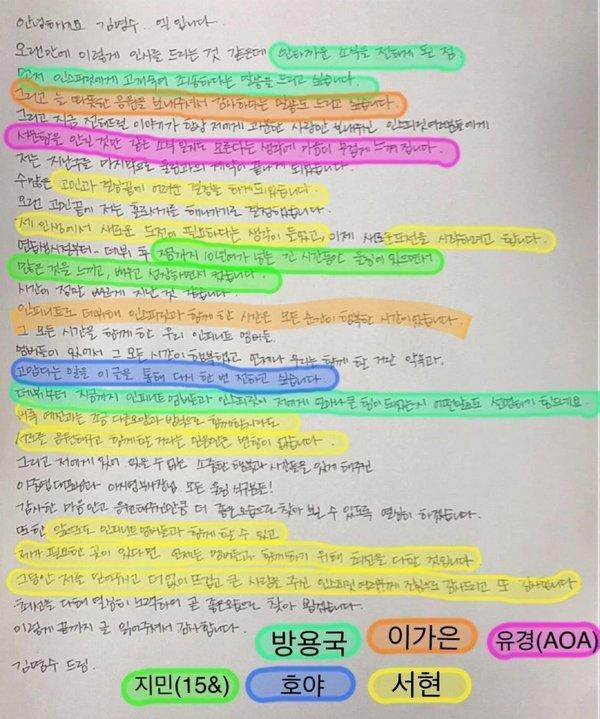 안녕하세요 김명수.. 엘 입니다.
오랜만에 이렇게 인사를 드리는 것 같은데 안타까운 소식을 전하게 된 점
먼저 인스피릿에게 고개숙여 죄송하다는 말씀을 드리고 싶습니다.
그리고 늘 따뜻한 응원을 보내주셔서 감사하다는 말씀도 드리고 싶습니다.
그리고 지금 전해드릴 이야기가 항상 저에게 과분한 사랑만 보내주신 인스피릿여러분들에게
서운함을 안길 것만 같은 소식 일지도 모른다는 생각에 마음이 무겁게 느껴집니다.
저는 지난주를 마지막으로 울림과의 계약이 끝나게 되었습니다.
수많은 고민과 걱정끝에 어려운 결정을 하게되었습니다.
오랜 고민끝에 저는 홀로서기를 해나가기로 결정하였습니다.
제 인생에서 새로운 도전이 필요하다는 생각이 들었고, 이제 새로운도전을 시작하려고 합니다.
연습생시절부터.. 데뷔 후 지금까지 10년여가 넘는 긴 시간동안 울림에 있으면서
많은 것을 느끼고, 배우고 성장하면서 컸습니다.
시간이 정말 빠르게 지난 것 같습니다.
인피니트로 데뷔해 인스피릿과 함께 한 시간은 모든 순간이 행복한 시간이었습니다.
그 모든 시간을 함께 한 우리 인피니트 멤버들.
멤버들이 있어서 그 모든 시간이 행복했고 언제나 우리는 함께 할 거란 약속과,
고맙다는 말을 이 글을 통해 다시 한 번 전하고 싶습니다.
데뷔부터 지금까지 인피니트 멤버들과 인스피릿이 저에게 얼마나 큰 힘이 되었는지 어떤말로도 설명하기 힘드네요.
비록 예전과는 조금 다른모양과 방식으로 함께할지라도
서로를 응원해주고 함께할 거라는 믿음만은 변함이 없습니다.
그리고 저에게 있어 잊을 수 없는 소중한 행복과 시간들을 있게 해주신
이중엽대표님과 이지영부사장님 모든 울림 식구분들!
감사한 마음안고 응원해주신만큼 더 좋은모습으로 찾아 뵐 수 있도록 열심히 하겠습니다.
또한 앞으로도 인피니트멤버들과 함께 할 수 있고
제가 필요한 곳이 있다면 언제든 멤버들과 함께하기 위해 최선을 다할 것입니다.
그동안 저를 믿어주시고 더없이 뜨겁고 큰 사랑을 주신 인스피릿 여러분께 진심으로 감사드리고 또 감사합니다
최선을 다해 열심히 노력하여 곧 좋은모습으로 찾아 뵙겠습니다.
이렇게 끝까지 글 읽어주셔서 감사합니다.
김명수 드림.
방용국 이가은 유경(AOA)
지민(15&) 호야 서현